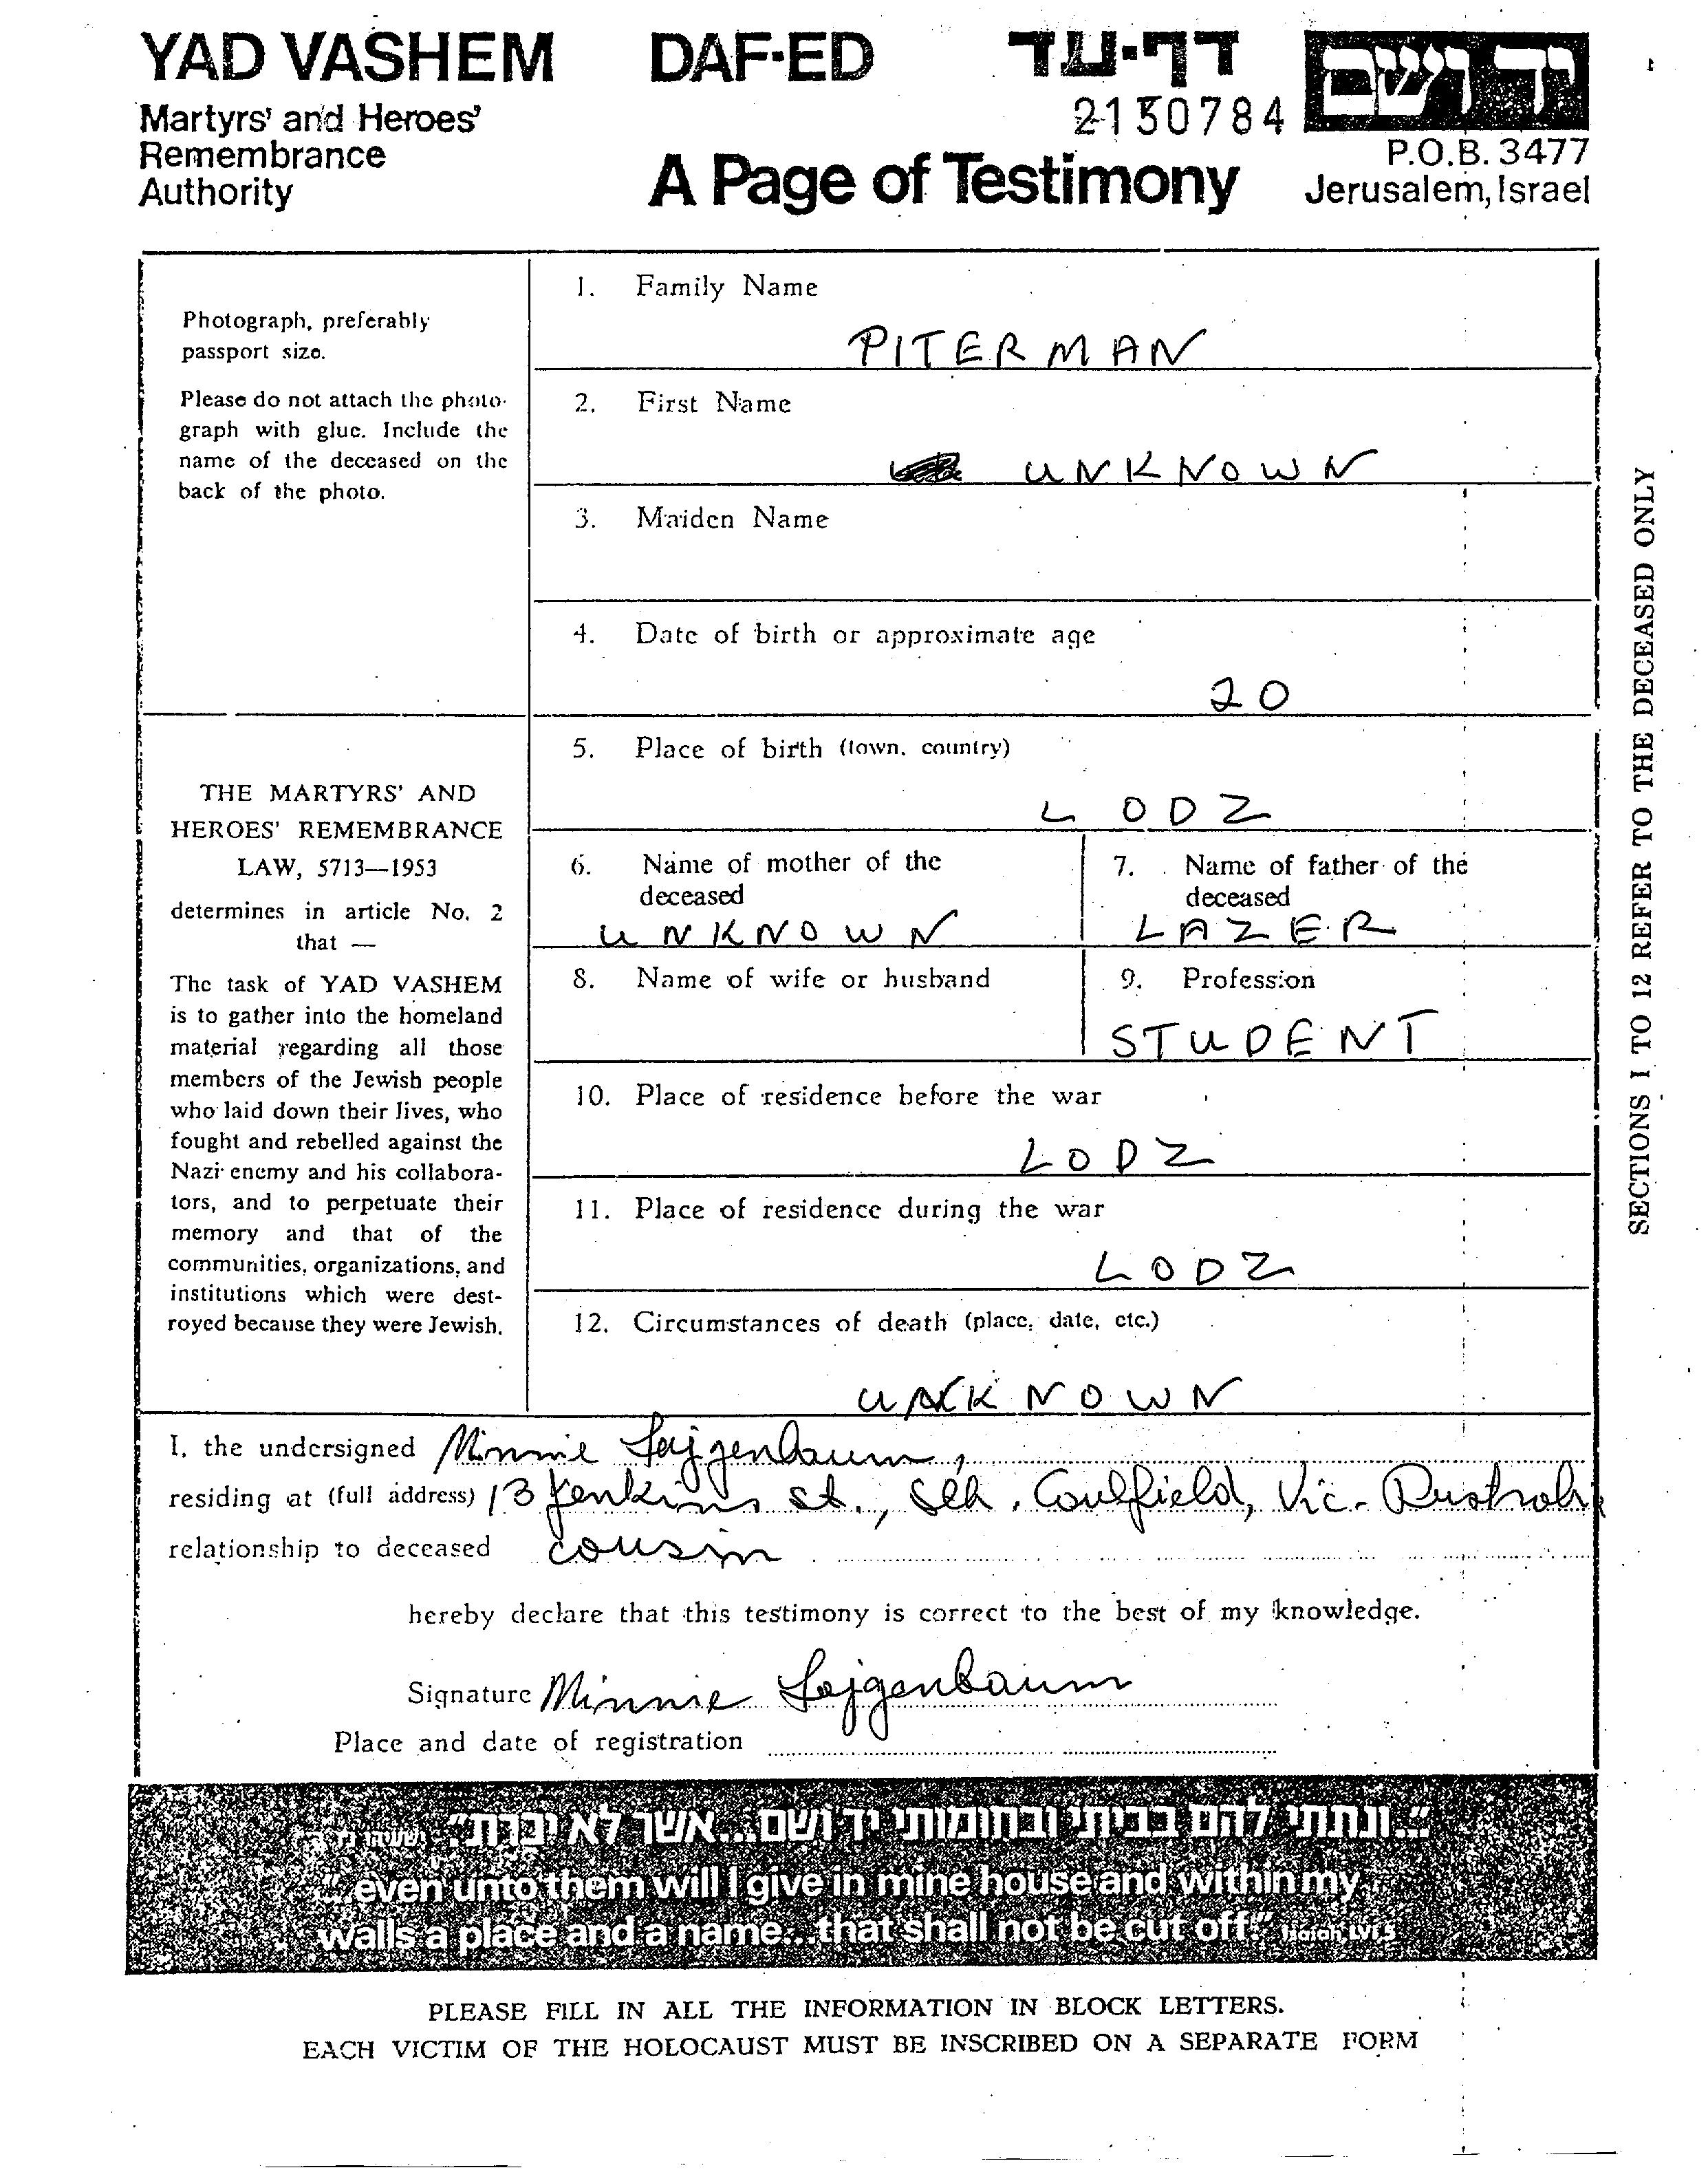 YAD VASHEM DAF-ED דף-עד יד ושם
Martyrs' and Heroes'
Remembrance
Authority
2150784
A Page of Testimony
P.O.B. 3477
Jerusalem, Israel
Photograph, preferably
passport size.
Please do not attach the photo-
graph with glue. Include the
name of the deceased on the
back of the photo.
THE MARTYRS' AND
HEROES' REMEMBRANCE
LAW, 5713—1953
determines in article No. 2
that —
The task of YAD VASHEM
is to gather into the homeland
material regarding all those
members of the Jewish people
who laid down their lives, who
fought and rebelled against the
Nazi enemy and his collabora-
tors, and to perpetuate their
memory and that of the
communities, organizations, and
institutions which were dest-
royed because they were Jewish.
1. Family Name
PITERMAN
2. First Name
UNKNOWN
3. Maiden Name
4. Date of birth or approximate age
20
5. Place of birth (town, country)
LODZ
6. Name of mother of the
deceased
UNKNOWN
7. Name of father of the
deceased
LAZER
8. Name of wife or husband
9. Profession
STUDENT
10. Place of residence before the war
LODZ
11. Place of residence during the war
LODZ
12. Circumstances of death (place, date, etc.)
UNKNOWN
SECTIONS 1 TO 12 REFER TO THE DECEASED ONLY
I, the undersigned Minnie Fajgenbaum,
residing at (full address) 13 Jenkins st., Sth. Caulfield, Vic. Australia
relationship to deceased cousin
hereby declare that this testimony is correct to the best of my knowledge.
Signature Minnie Fajgenbaum
Place and date of registration
"...ונתתי להם בביתי ובחומותי יד ושם...אשר לא יכרת".
"...even unto them will I give in mine house and within my
walls a place and a name...that shall not be cut off." Isaiah LVI, 5
PLEASE FILL IN ALL THE INFORMATION IN BLOCK LETTERS.
EACH VICTIM OF THE HOLOCAUST MUST BE INSCRIBED ON A SEPARATE FORM